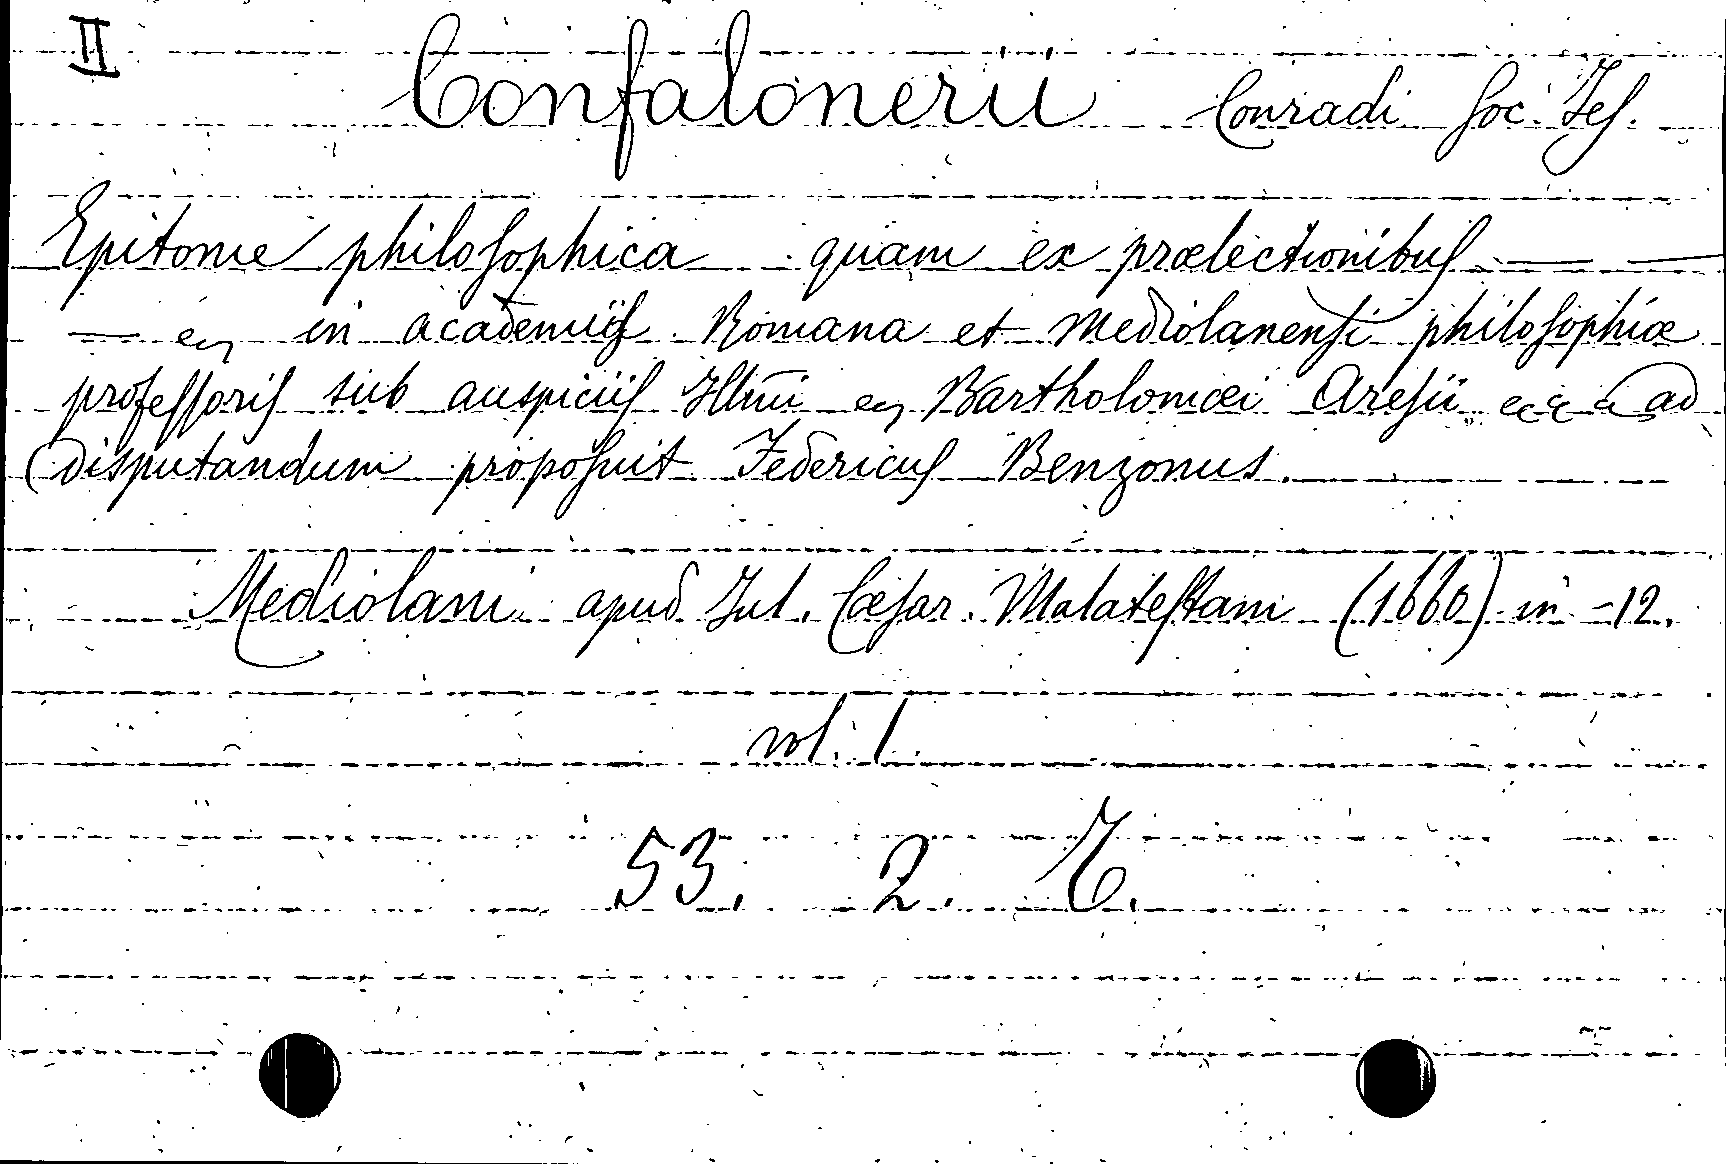 II
Confalonerii Conradi Soc. Jes.
Epitome philosophica quam ex prælectionibus — —
— in academijs Romana et Mediolanensi philosophiæ
professoris sub auspiciis Illmi Bartholomæi Aresii ad
disputandum proposuit Federicus Benzonus.
Mediolani apud Jul. Cæsar. Malatestam (1660) in -12.
vol. 1.
53. 2. C.